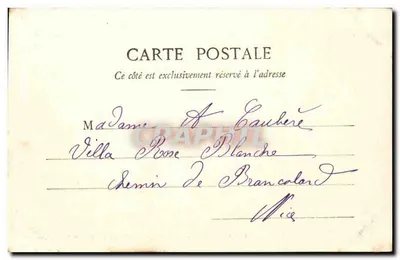 CARTE POSTALE
Ce côté est exclusivement réservé à l'adresse
Madame A Caubère
Villa Rose Blanche
chemin de Brancolard
Nice